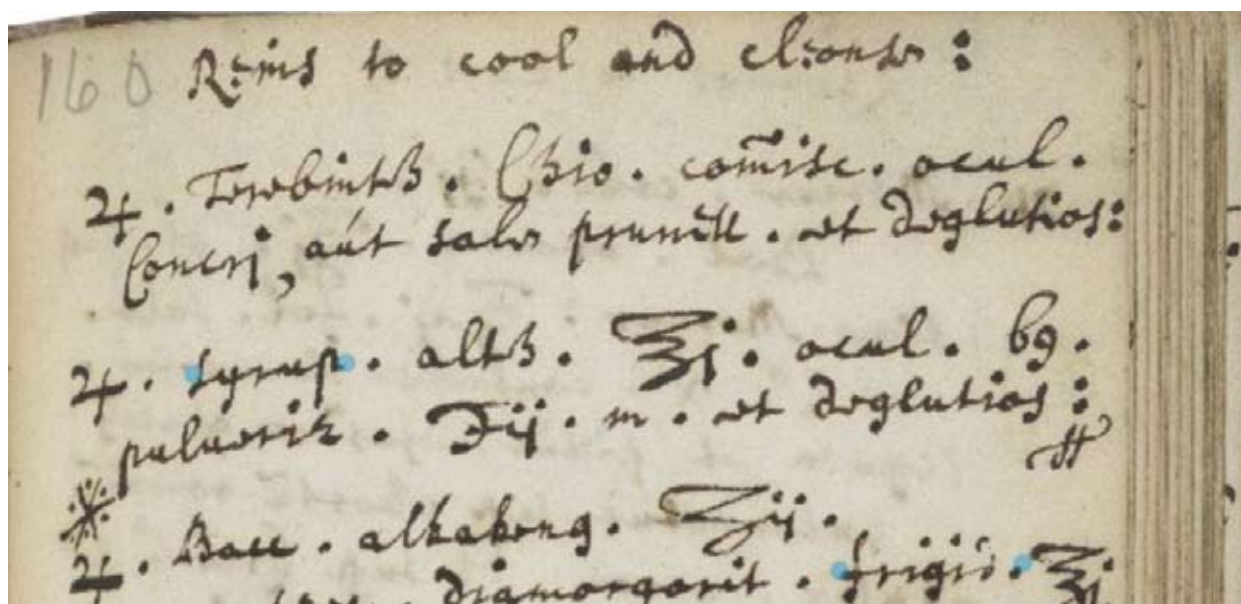 160 Reins to cool and cleanse :
♃. Terebinth. Chio. com̃isc. ocul.
Cancrj, aut sale prunell. et deglutias:
♃. syrup. alth. ℥j. ocul. 69.
pulueriz. ʒij. m. et deglutias :
♃. Bacc. alkakeng. ℥ij.
diamargarit. frigid. ℥j